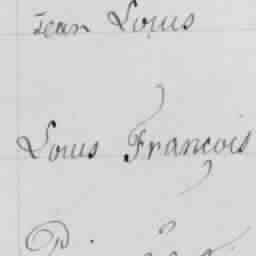 Jean Louis
Louis François